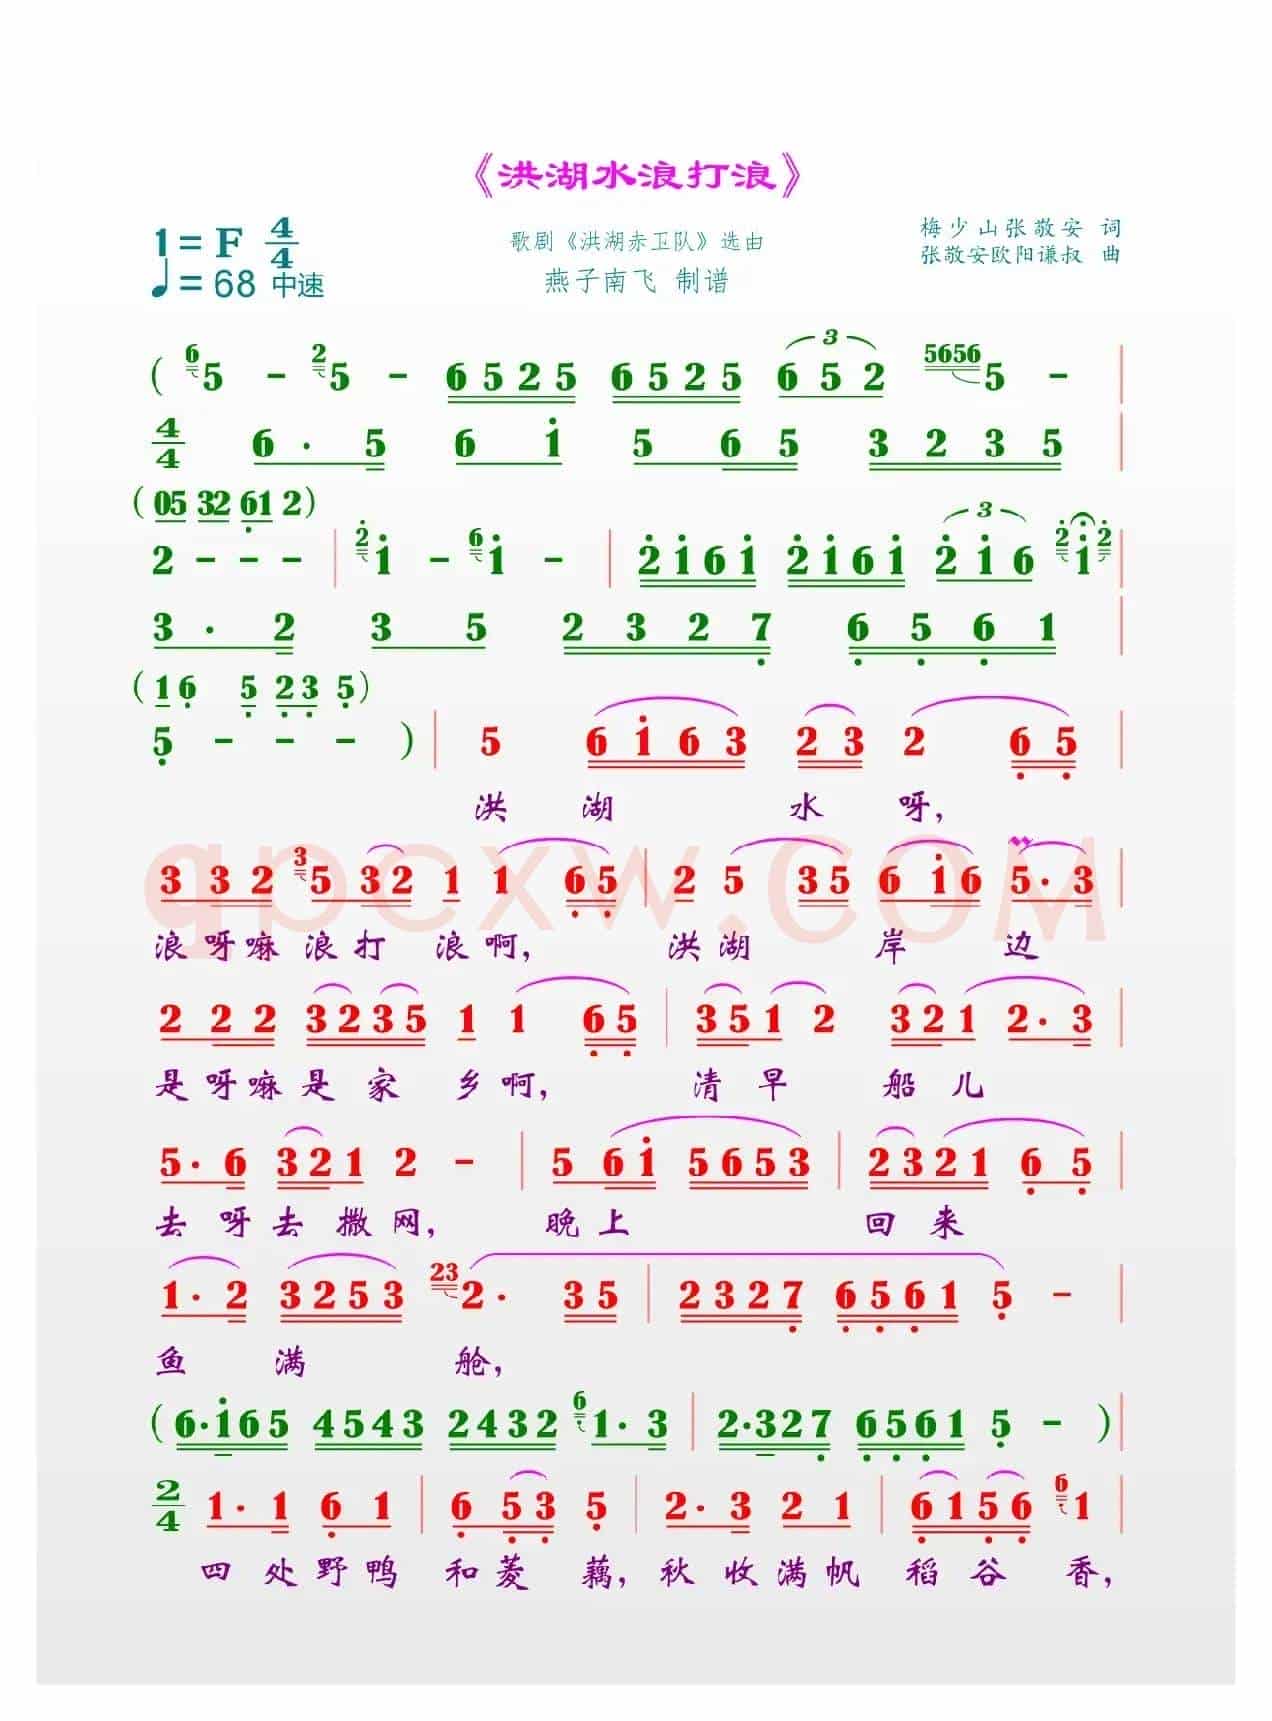 《洪湖水浪打浪》
1=F 4/4
♩=68 中速
歌剧《洪湖赤卫队》选曲
燕子南飞 制谱
梅少山张敬安 词
张敬安欧阳谦叔 曲
( 6 5 - 2 5 - 6525 6525 3 652 5656 5 -
4/4 6· 5 6 1 5 65 3235
(05 32 61 2)
2 - - - 2 1 - 6 1 - 2161 2161 3 216 2 1 2
3· 2 3 5 2327 6561
(16 5 23 5)
5 - - - ) 5 6163 23 2 65
洪 湖 水 呀,
3 32 3 5 32 1 1 65 2 5 35 6 16 5· 3
浪呀嘛浪打 浪啊, 洪湖 岸 边
2 22 3235 1 1 65 351 2 321 2· 3
是呀嘛是 家 乡啊, 清早 船儿
5· 6 321 2 - 5 61 5653 2321 6 5
去 呀去 撒网, 晚上 回 来
1· 2 3253 23 2· 35 2327 6561 5 -
鱼 满 舱,
(6·165 4543 2432 6 1· 3 2·327 6561 5 - )
2/4 1· 1 6 1 6 53 5 2· 3 2 1 6156 6 1
四 处野鸭 和菱 藕,秋 收满帆 稻谷 香,
gpcxw.COM